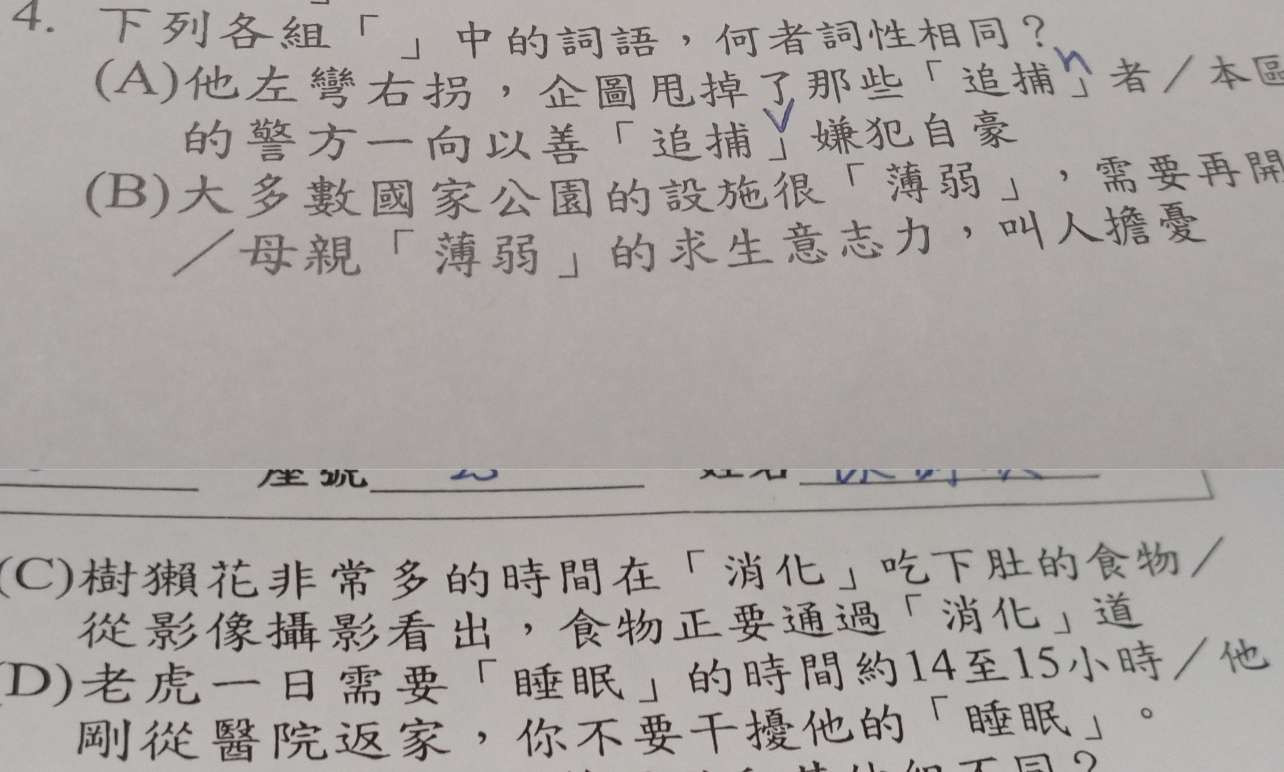 4. 下列各組「 」中的詞語，何者詞性相同？
n
(A)他左彎右拐，企圖甩掉了那些「追捕」者／本區
v
的警方一向以善「追捕」嫌犯自豪
(B)大多數國家公園的設施很「薄弱」，需要再開
／母親「薄弱」的求生意志力，叫人擔憂
座號
姓名
(C)樹獺花非常多的時間在「消化」吃下肚的食物／
從影像攝影看出，食物正要通過「消化」道
(D)老虎一日需要「睡眠」的時間約14至15小時／他
剛從醫院返家，你不要干擾他的「睡眠」。